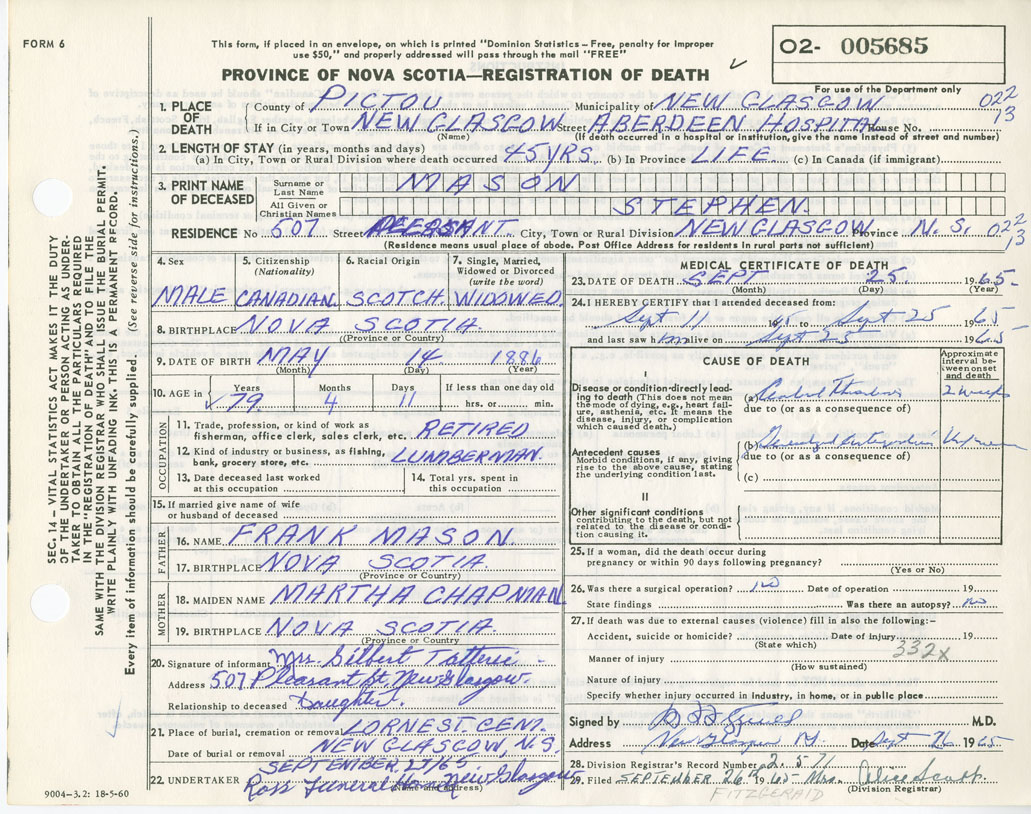 FORM 6
This form, if placed in an envelope, on which is printed "Dominion Statistics – Free, penalty for improper
use $50," and properly addressed will pass through the mail "FREE"
O2- 005685
PROVINCE OF NOVA SCOTIA—REGISTRATION OF DEATH
For use of the Department only
022
13
1. PLACE OF DEATH
County of PICTOU Municipality of NEW GLASGOW
If in City or Town NEW GLASGOW Street ABERDEEN HOSPITAL House No.
(Name) (If death occurred in a hospital or institution, give the name instead of street and number)
2. LENGTH OF STAY (in years, months and days)
(a) In City, Town or Rural Division where death occurred 45 YRS. (b) In Province LIFE (c) In Canada (if immigrant)
3. PRINT NAME OF DECEASED
Surname or Last Name MASON
All Given or Christian Names STEPHEN
RESIDENCE No 507 Street City, Town or Rural Division NEW GLASGOW Province N. S. 022
13
(Residence means usual place of abode. Post Office Address for residents in rural parts not sufficient)
4. Sex MALE
5. Citizenship (Nationality) CANADIAN
6. Racial Origin SCOTCH
7. Single, Married, Widowed or Divorced (write the word) WIDOWED
8. BIRTHPLACE NOVA SCOTIA
(Province or Country)
9. DATE OF BIRTH MAY 14 1886
(Month) (Day) (Year)
10. AGE in Years 79 Months 4 Days 11 If less than one day old hrs. or min.
OCCUPATION
11. Trade, profession, or kind of work as fisherman, office clerk, sales clerk, etc. RETIRED
12. Kind of industry or business, as fishing, bank, grocery store, etc. LUMBERMAN
13. Date deceased last worked at this occupation
14. Total yrs. spent in this occupation
15. If married give name of wife or husband of deceased
FATHER
16. NAME FRANK MASON
17. BIRTHPLACE NOVA SCOTIA
(Province or Country)
MOTHER
18. MAIDEN NAME MARTHA CHAPMAN
19. BIRTHPLACE NOVA SCOTIA
(Province or Country)
20. Signature of informant Mrs. Gilbert
Address 507 Pleasant St. New Glasgow.
Relationship to deceased Daughter.
21. Place of burial, cremation or removal LORNEST. CEM.
NEW GLASGOW, N.S.
Date of burial or removal SEPTEMBER 27/65
22. UNDERTAKER Ross Funeral Ho. New Glasgow
(Name and address)
9004-3.2: 18-5-60
MEDICAL CERTIFICATE OF DEATH
23. DATE OF DEATH SEPT 25 1965
(Month) (Day) (Year)
24. I HEREBY CERTIFY that I attended deceased from:
Sept 11 1965 to Sept 25 1965
and last saw him alive on Sept 25 1965
CAUSE OF DEATH
Approximate interval between onset and death
I
Disease or condition directly leading to death (This does not mean the mode of dying, e.g., heart failure, asthenia, etc. It means the disease, injury, or complication which caused death.)
(a) Cerebral Thrombosis 2 weeks
due to (or as a consequence of)
Antecedent causes
Morbid conditions, if any, giving rise to the above cause, stating the underlying condition last.
(b) Generalized Arteriosclerosis
due to (or as a consequence of)
(c)
II
Other significant conditions
contributing to the death, but not related to the disease or condition causing it.
25. If a woman, did the death occur during pregnancy or within 90 days following pregnancy?
(Yes or No)
26. Was there a surgical operation? no Date of operation 19
State findings Was there an autopsy? no
27. If death was due to external causes (violence) fill in also the following:–
Accident, suicide or homicide? Date of injury 19
(State which) 332x
Manner of injury
(How sustained)
Nature of injury
Specify whether injury occurred in Industry, in home, or in public place
Signed by M.D.
Address New Glasgow Date Sept 26 1965
28. Division Registrar's Record Number 2571
29. Filed SEPTEMBER 26th 1965 Mrs. Alice Scott
(Division Registrar)
FITZGERALD
SEC. 14 – VITAL STATISTICS ACT MAKES IT THE DUTY
OF THE UNDERTAKER OR PERSON ACTING AS UNDER-
TAKER TO OBTAIN ALL THE PARTICULARS REQUIRED
IN THE "REGISTRATION OF DEATH" AND TO FILE THE
SAME WITH THE DIVISION REGISTRAR WHO SHALL ISSUE THE BURIAL PERMIT.
WRITE PLAINLY WITH UNFADING INK – THIS IS A PERMANENT RECORD.
Every item of information should be carefully supplied. (See reverse side for instructions.)